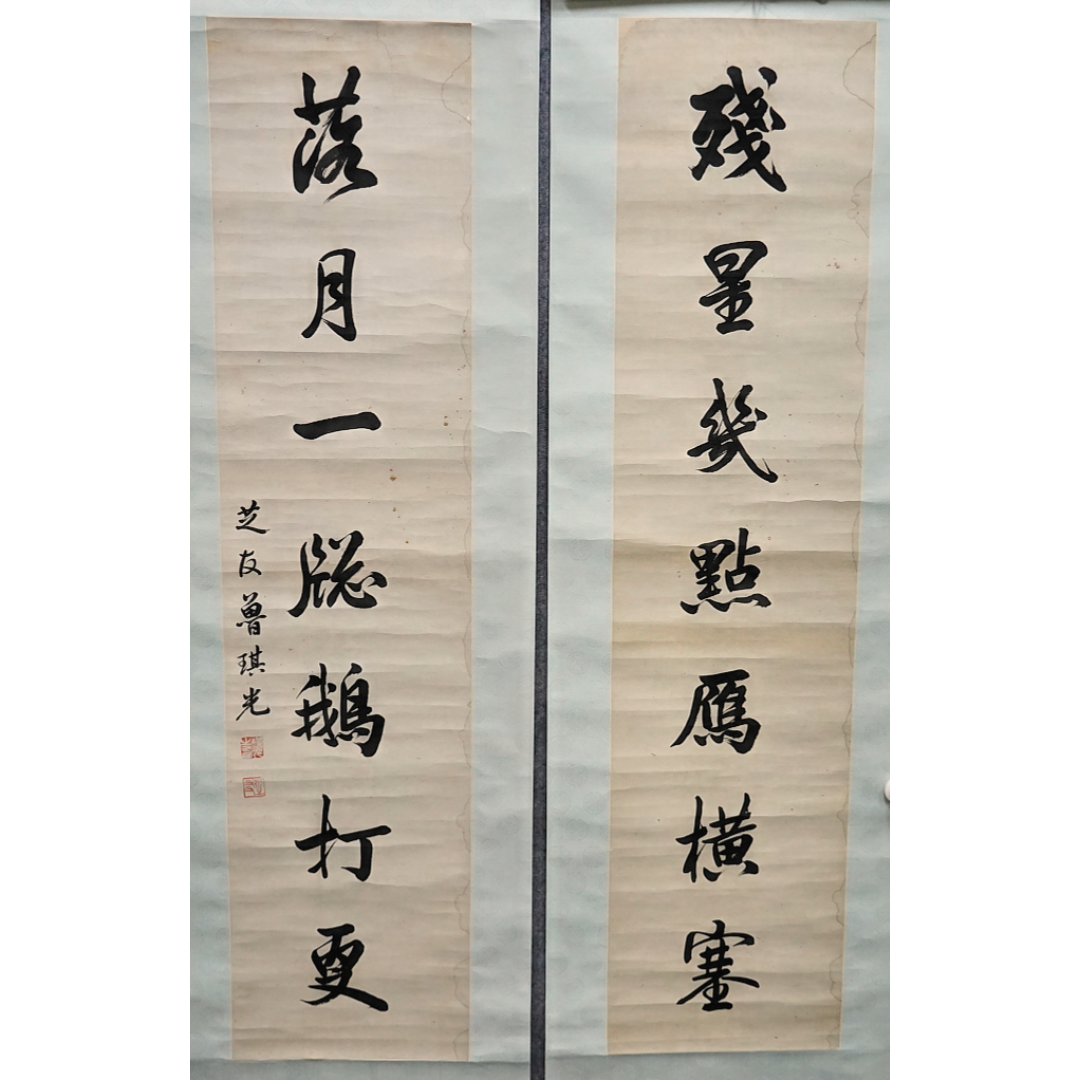 殘星幾點鴈橫塞
落月一牎鵝打更
芝友魯琪光